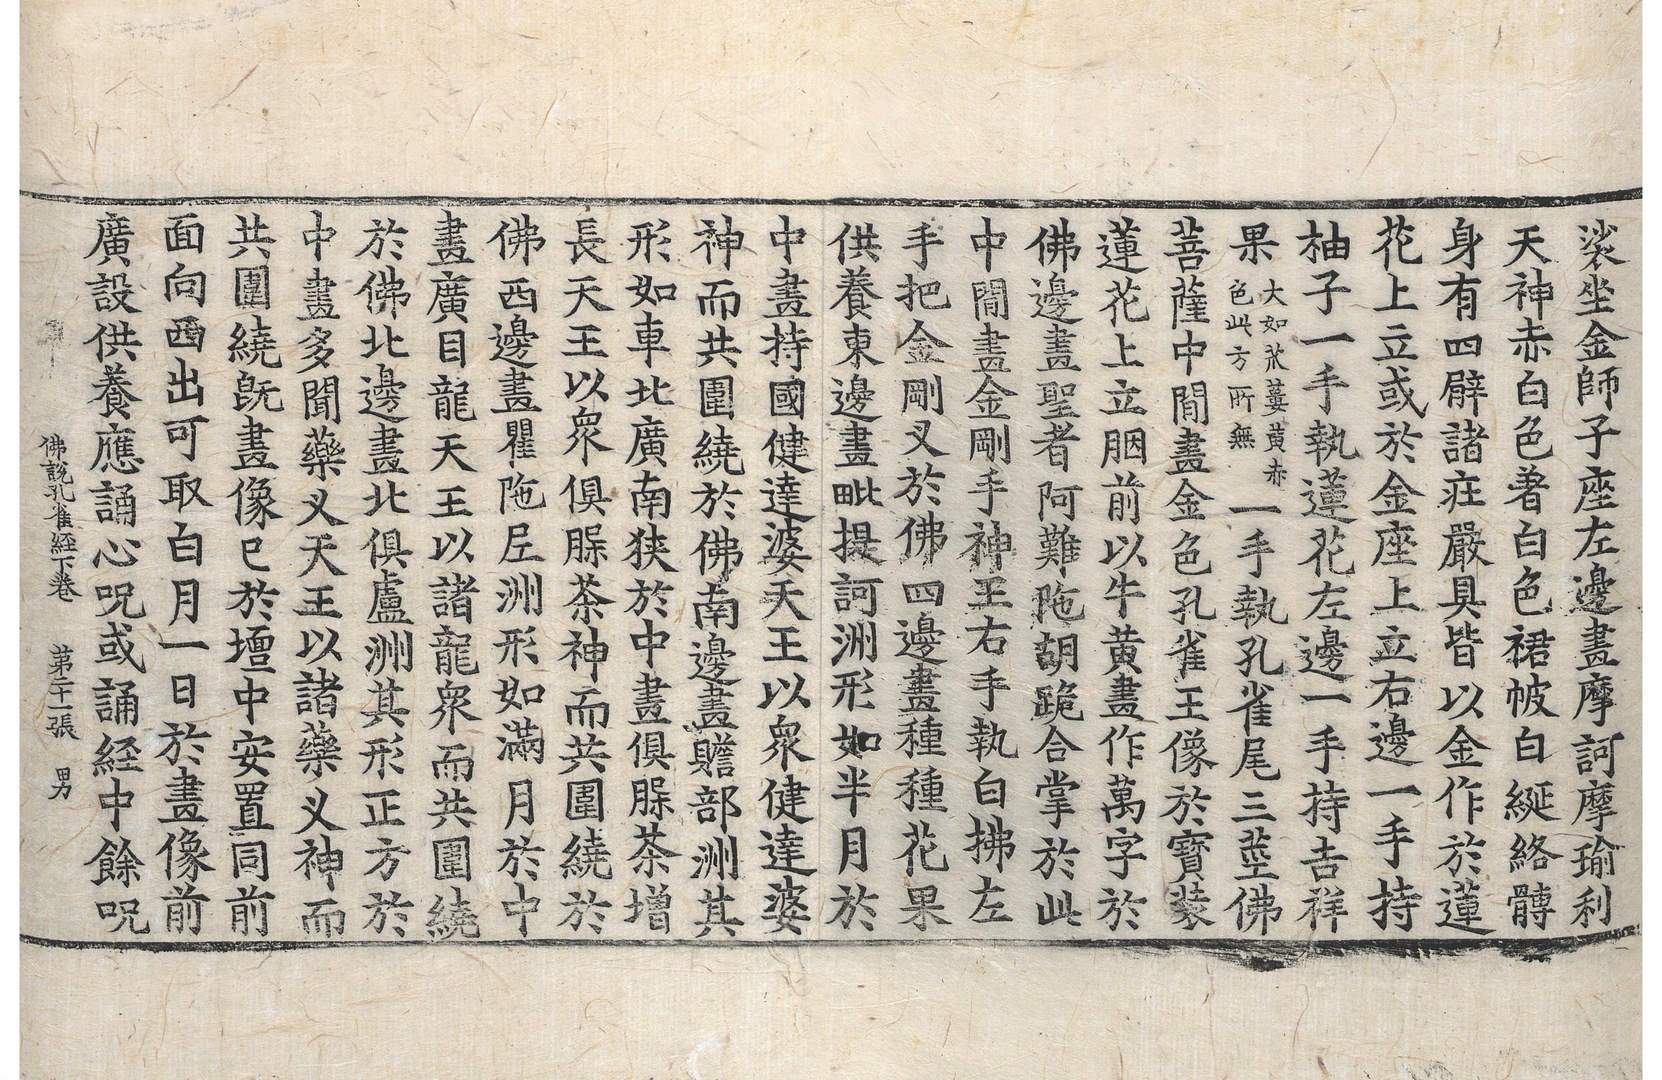 裟坐金師子座左邊畫摩訶摩瑜利
天神赤白色著白色裙帔白綖絡髆
身有四臂諸莊嚴具皆以金作於蓮
花上立或於金座上立右邊一手持
柚子一手執蓮花左邊一手持吉祥
果大如苽蔞黃赤
色此方所無一手執孔雀尾三莖佛
菩薩中間畫金色孔雀王像於寶裝
蓮花上立胭前以牛黃畫作萬字於
佛邊畫聖者阿難陁胡跪合掌於此
中間畫金剛手神王右手執白拂左
手把金剛叉於佛四邊畫種種花果
供養東邊畫毗提訶洲形如半月於
中畫持國健達婆天王以眾健達婆
神而共圍繞於佛南邊畫贍部洲其
形如車北廣南狹於中畫俱脲茶增
長天王以眾俱脲茶神而共圍繞於
佛西邊畫瞿陁尼洲形如滿月於中
畫廣目龍天王以諸龍眾而共圍繞
於佛北邊畫北俱盧洲其形正方於
中畫多聞藥义天王以諸藥义神而
共圍繞既畫像已於壇中安置同前
面向西出可取白月一日於畫像前
廣設供養應誦心呪或誦經中餘呪
佛說孔雀經下卷 第二十一張 男